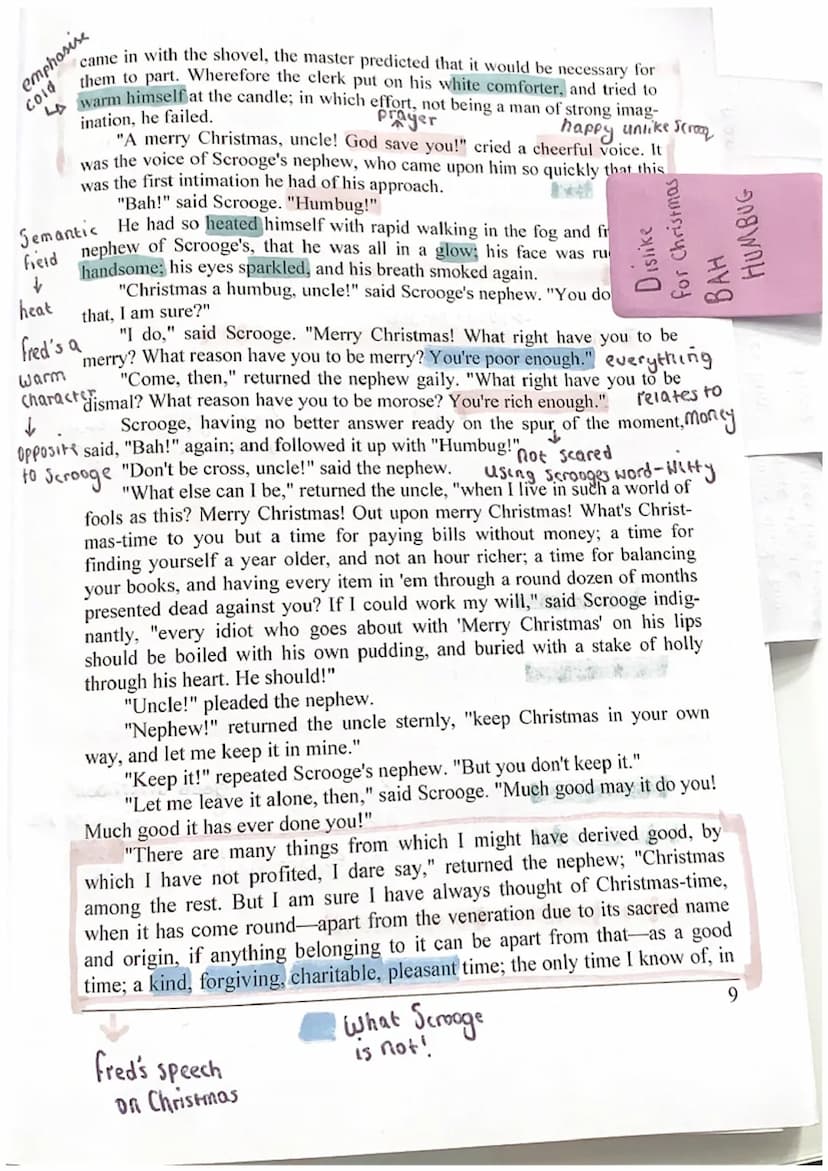 emphasise
cold
came in with the shovel, the master predicted that it would be necessary for
them to part. Wherefore the clerk put on his white comforter, and tried to
warm himself at the candle; in which effort, not being a man of strong imag-
ination, he failed.
prayer
happy unlike Scroog
"A merry Christmas, uncle! God save you!" cried a cheerful voice. It
was the voice of Scrooge's nephew, who came upon him so quickly that this
was the first intimation he had of his approach.
"Bah!" said Scrooge. "Humbug!"
He had so heated himself with rapid walking in the fog and fr
nephew of Scrooge's, that he was all in a glow; his face was ru
handsome; his eyes sparkled, and his breath smoked again.
Semantic
field
heat
Dislike
for Christmas
BAH
HUMBUG
"Christmas a humbug, uncle!" said Scrooge's nephew. "You do
that, I am sure?"
"I do," said Scrooge. "Merry Christmas! What right have you to be
merry? What reason have you to be merry? You're poor enough."
everything
relates to
money
fred's a
warm
character
opposite
to Scrooge
"Come, then," returned the nephew gaily. "What right have you to be
dismal? What reason have you to be morose? You're rich enough."
Scrooge, having no better answer ready on the spur of the moment,
said, "Bah!" again; and followed it up with "Humbug!"
not scared
using Scrooges word-witty
"Don't be cross, uncle!" said the nephew.
"What else can I be," returned the uncle, "when I live in such a world of
fools as this? Merry Christmas! Out upon merry Christmas! What's Christ-
mas-time to you but a time for paying bills without money; a time for
finding yourself a year older, and not an hour richer; a time for balancing
your books, and having every item in 'em through a round dozen of months
presented dead against you? If I could work my will," said Scrooge indig-
nantly, "every idiot who goes about with 'Merry Christmas' on his lips
should be boiled with his own pudding, and buried with a stake of holly
through his heart. He should!"
"Uncle!" pleaded the nephew.
"Nephew!" returned the uncle sternly, "keep Christmas in your own
way, and let me keep it in mine."
"Keep it!" repeated Scrooge's nephew. "But you don't keep it."
"Let me leave it alone, then," said Scrooge. "Much good may it do you!
Much good it has ever done you!"
"There are many things from which I might have derived good, by
which I have not profited, I dare say," returned the nephew; "Christmas
among the rest. But I am sure I have always thought of Christmas-time,
when it has come round—apart from the veneration due to its sacred name
and origin, if anything belonging to it can be apart from that—as a good
time; a kind, forgiving, charitable, pleasant time; the only time I know of, in
9
What Scrooge
is not!
fred's speech
on Christmas